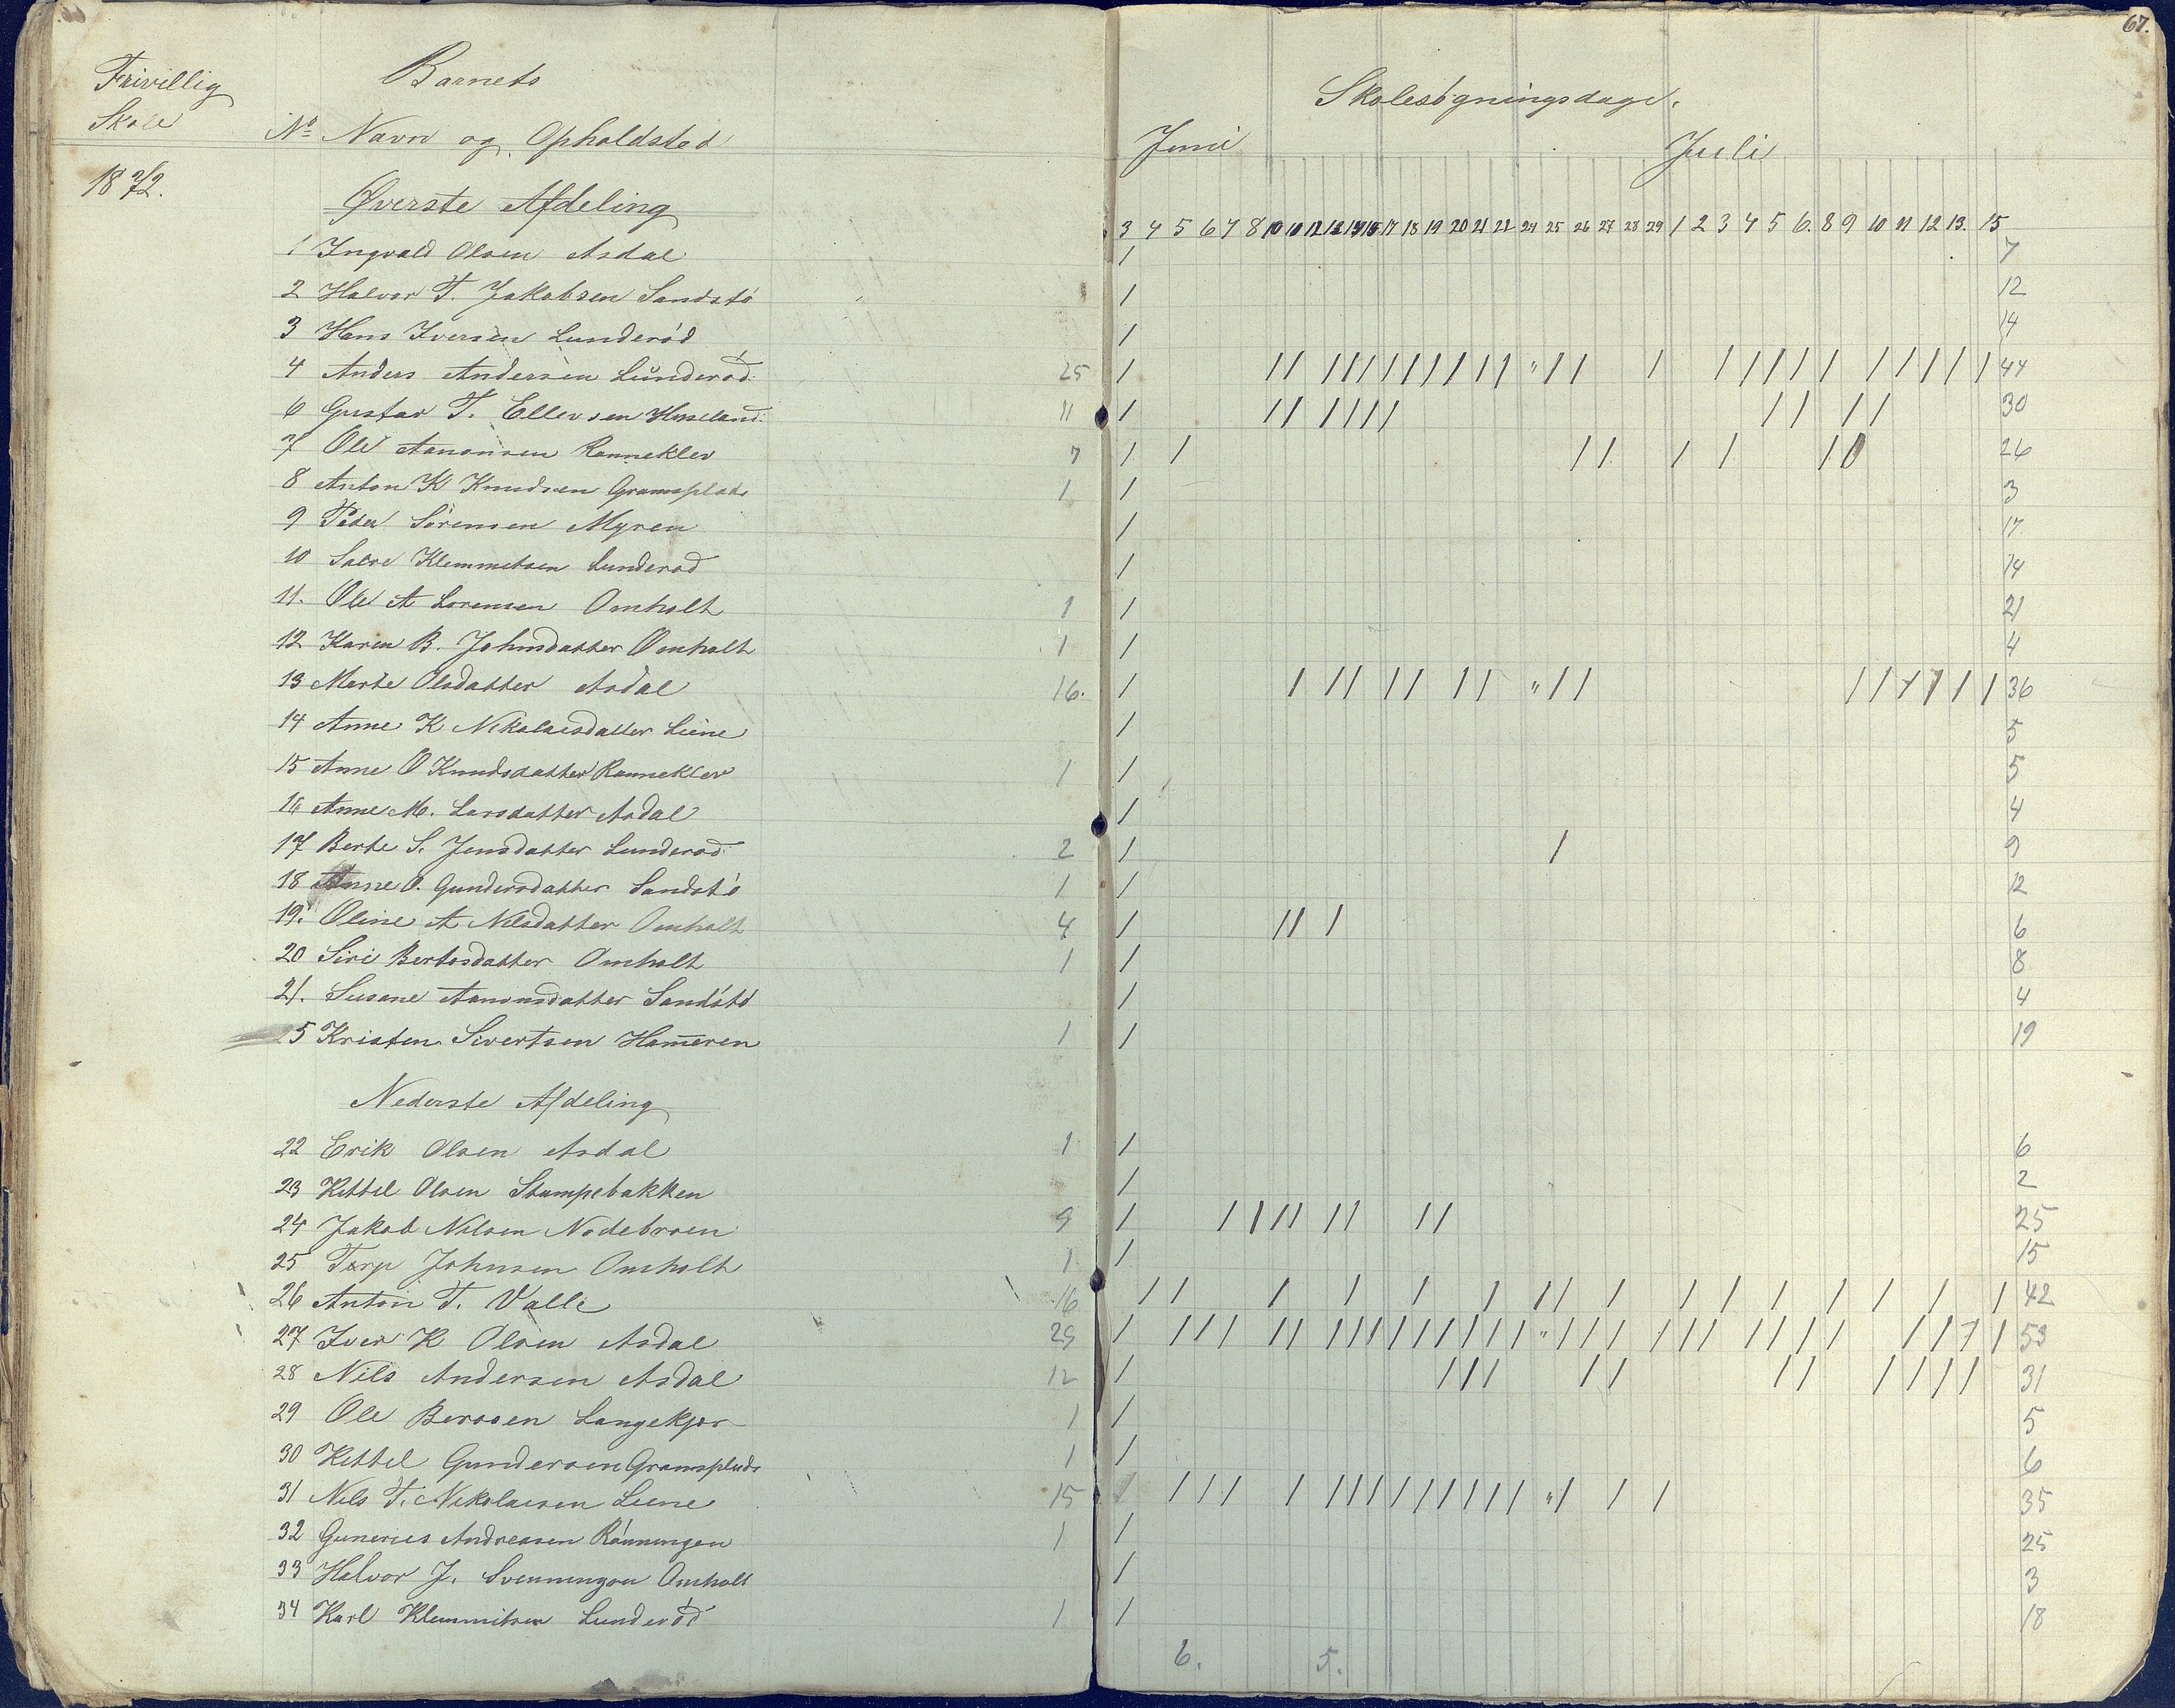 67.
Frivillig
Skole
1872.
Barnets
No Navn og Opholdsted
Skolesøgningsdage.
Juni Juli
Øverste Afdeling
3 4 5 6 7 8 10 11 12 13 14 15 17 18 19 20 21 22 24 25 26 27 28 29 1 2 3 4 5 6. 8 9 10 11 12 13. 15
1 Ingvald Olsen Asdal / 7
2 Halvor T. Jakobsen Sandstø / 12
3 Hans Iversen Lunderød / 14
4 Anders Andersen Lunderød. 25 / // //////// // " // / ///// ///// 44
6 Gustav T. Ellevsen Huseland. 11 / // //// // // 30
7 Ole Aanonsen Ranneklev 7 / / // / / // 26
8 Anton K Knudsen Gramsplads 1 / 3
9 Peder Sørensen Myren / 17
10 Salve Klemmetsen Lunderød / 14
11. Ole A Lorensen Omholt 1 / 21
12 Karen B. Johnsdatter Omholt 1 / 4
13 Marte Olsdatter Asdal 16. / / // // // " // ////// 36
14 Anne K Nikolaisdatter Liene / 5
15 Anne O Knudsdatter Ranneklev 1 / 5
16 Anne M. Larsdatter Asdal / 4
17 Berte S. Jensdatter Lunderød 2 / / 9
18 Anne O. Gundersdatter Sandstø 1 / 12
19. Oline A Nilsdatter Omholt 4 / // / 6
20 Siri Bertosdatter Omholt 1 / 8
21. Susane Aanonsdatter Sandstø / 4
5 Kristen Sivertsen Ham̅eren 1 / 19
Nederste Afdeling
22 Erik Olsen Asdal 1 / 6
23 Kittel Olsen Stampebakken / 2
24 Jakob Nilsen Nodebroen 9 / //// // // 25
25 Terje Johnsen Omholt 1 / 15
26 Anton T. Valle 16 // / / / / // / / / / / / / / 42
27 Iver K Olsen Asdal 29 / /// // ///////// " /// /// //// //// 53
28 Nils Andersen Asdal 12 / /// // // //// 31
29 Ole Berosen Langekjær 1 / 5
30 Kittel Gundersen Gramsplads 1 / 6
31 Nils T. Nikolaisen Liene 15 / /// / ///////// " / / / 35
32 Gunerius Andreasen Rønningen 1 / 25
33 Halvor J. Svenningsen Omholt / 3
34 Karl Klemmitsen Lunderød 1 / 18
6. 5.